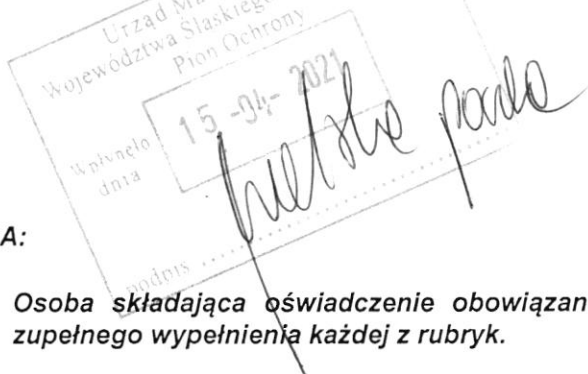 Urząd Ma
Województwa Śląskiego
Pion Ochrony
Wpłynęło
dnia
15 -04- 2021
podpis ........................
A:
Osoba składająca oświadczenie obowiązan
zupełnego wypełnienia każdej z rubryk.